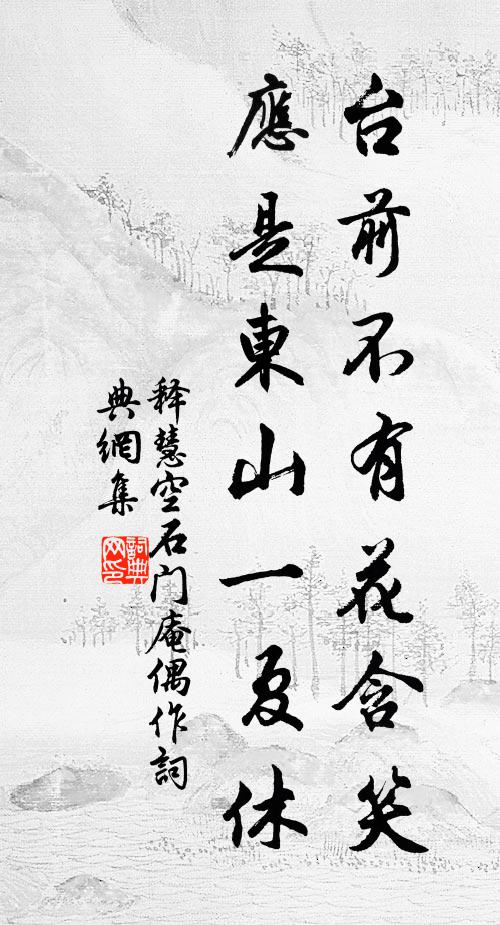 台前不有花含笑
應是東山一夏休
释慧空石门庵偶作詞
典網集
詞典網印